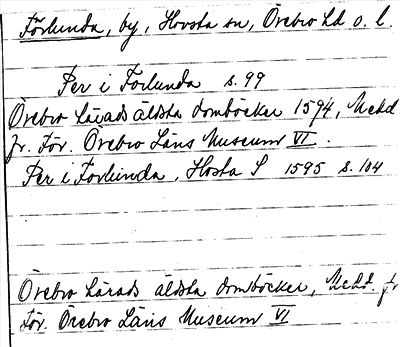 Förlunda, by, Hovsta sn, Örebro hd o. l.
Per i Forlunda s. 99
Örebro härads äldsta domböcker 1594, Medd
fr. För. Örebro Läns Museum VI.
Per i Forlunda, Hosta S 1595 s. 104
Örebro härads äldsta domböcker, Medd. fr
För. Örebro Läns Museum VI